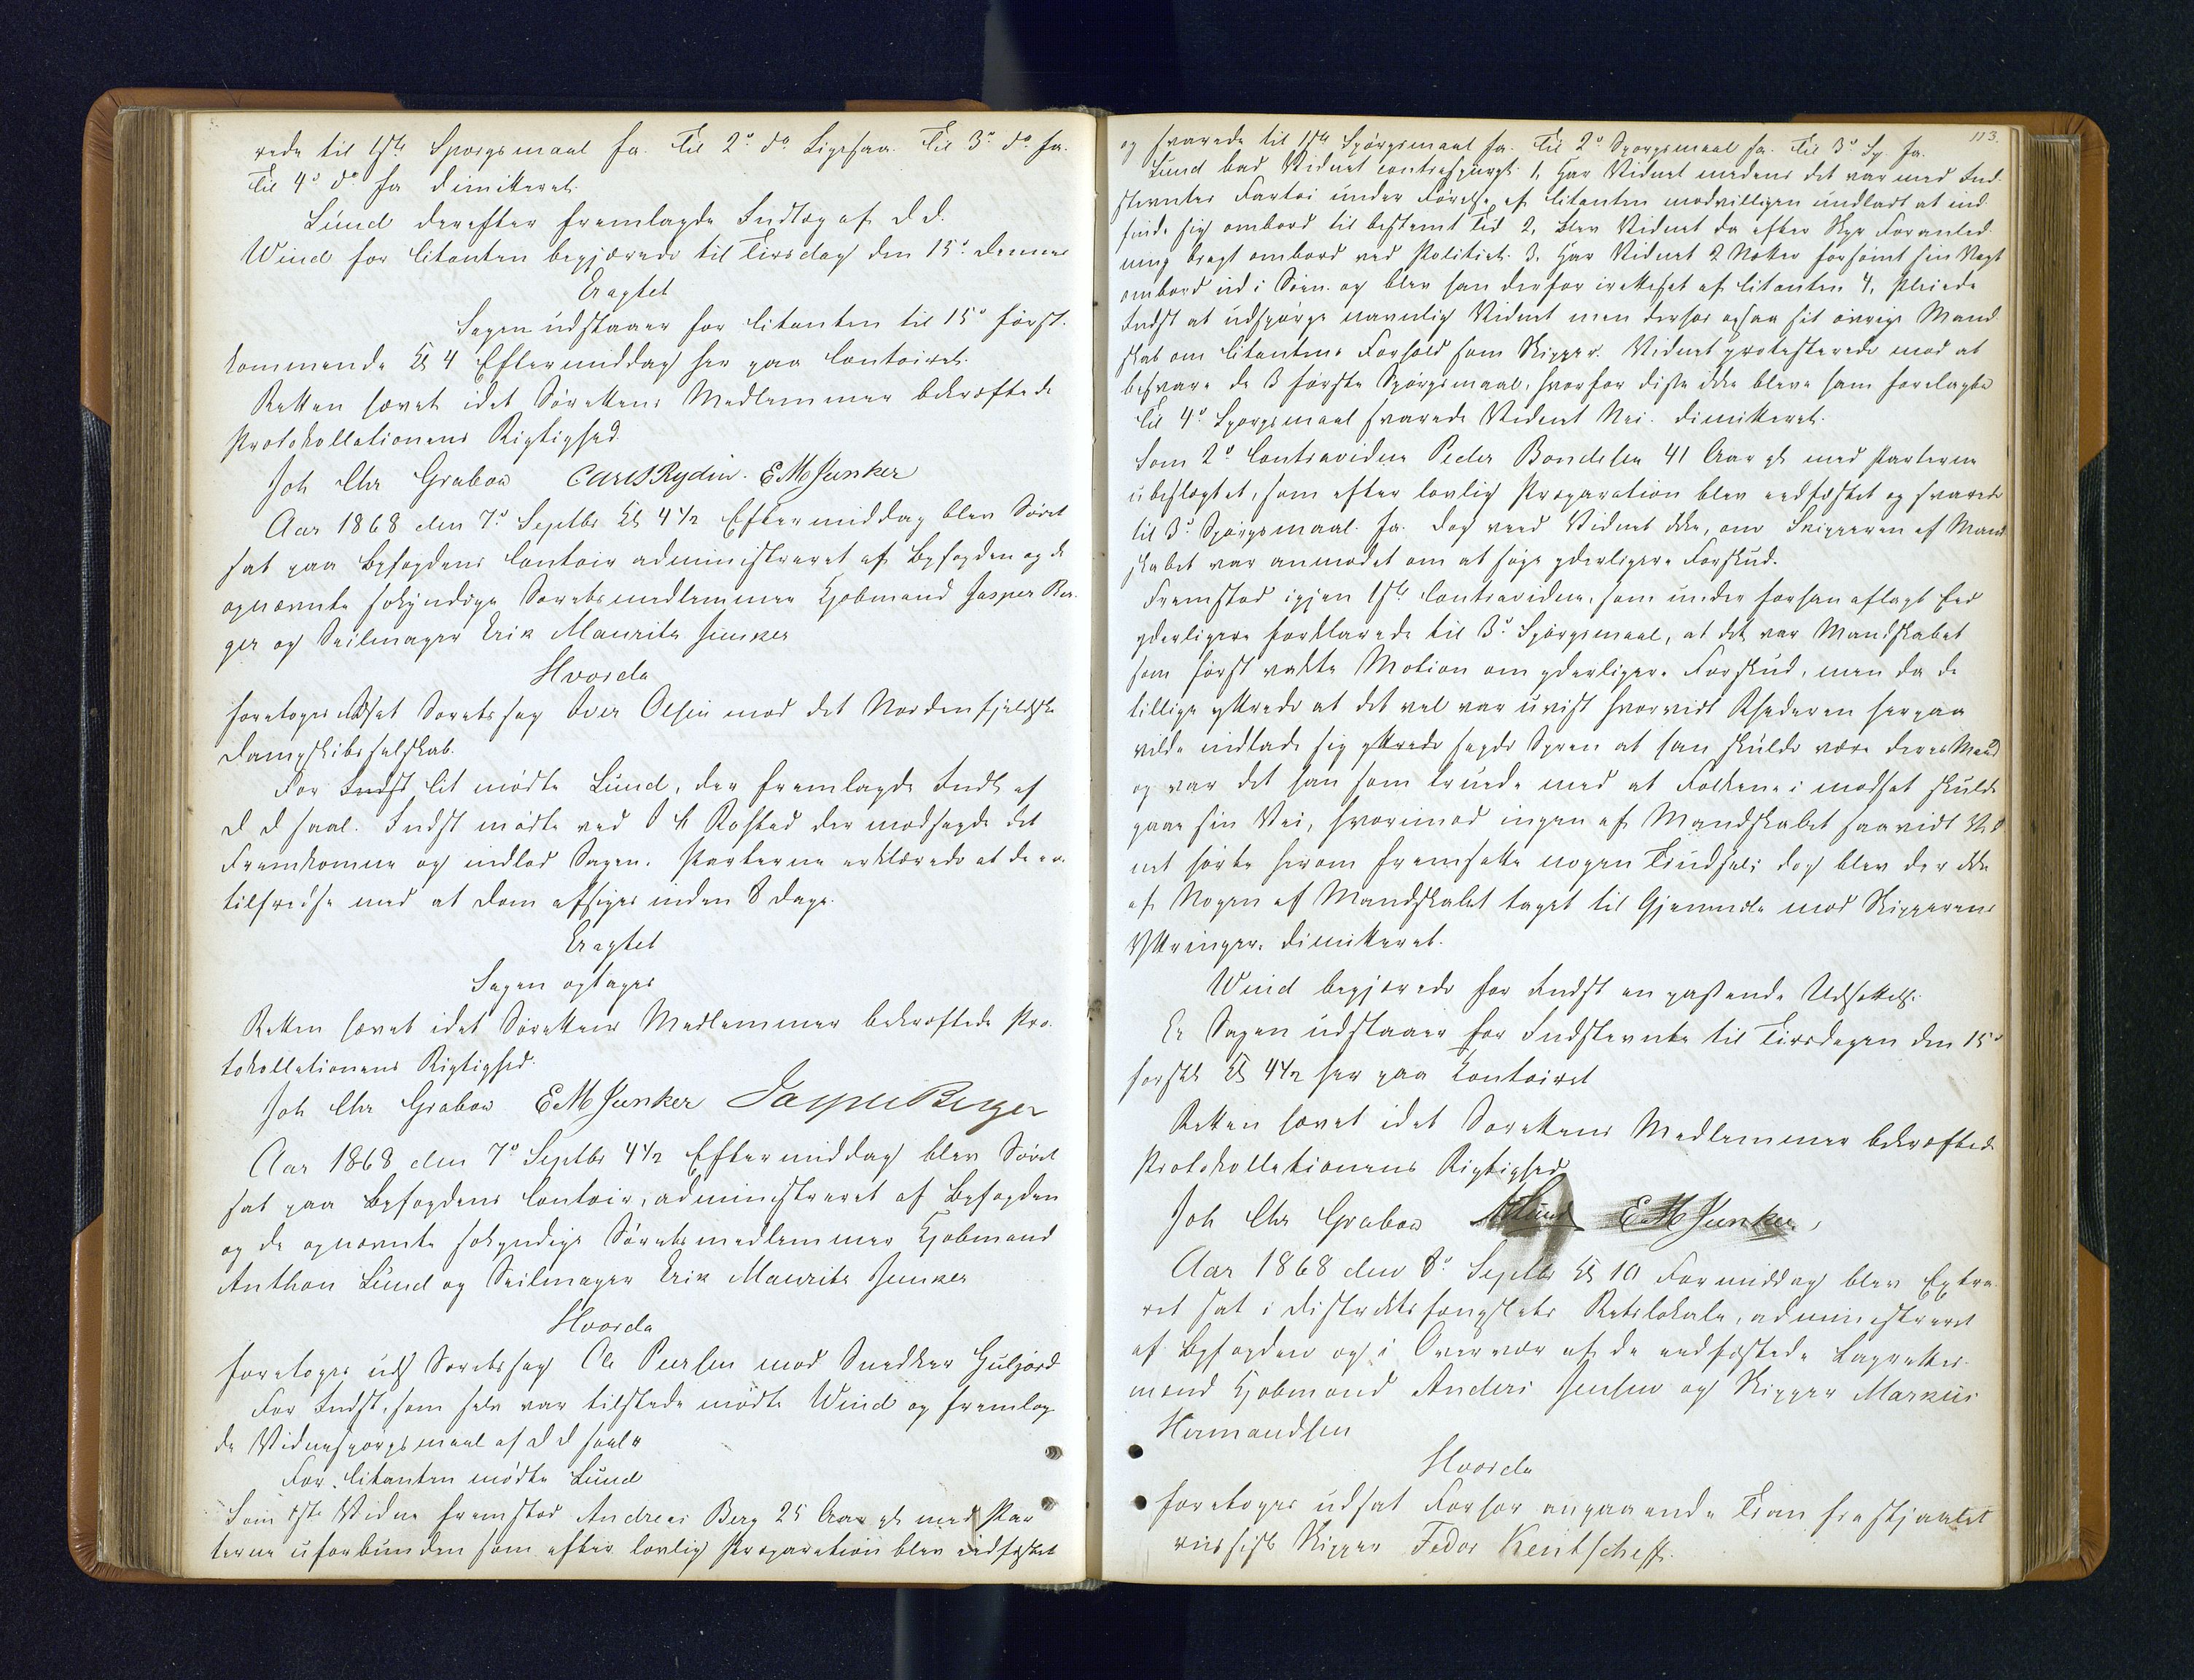 rede til 1ste Spørgsmaal Ja. Til 2º dº Ligesaa. Til 3º dº Ja.
Til 4º dº Ja dimitteret.
Lund derefter fremlagde Indlæg af D. D.
Wind for Citanten begjærede til Tirsdag den 15º. dennes
Eragtet
Sagen udstaaer for Citanten til 15º først-
kommende Kl 4 Eftermiddag her paa Contoiret.
Retten hævet idet Sørettens Medlemmer bekræftede
Protokollationens Rigtighed.
Joh Chr Grabow Carl S Rydin. E M Junker
Aar 1868 den 7º Septbr Kl 4½ Eftermiddag blev Søret
sat paa Byfogdens Contoir administreret af Byfogden og de
opnævnte søkyndige Søretsmedlemmer Kjøbmand Jasper Ber-
ger og Seilmager Erik Mauritz Junker
Hvorda
foretoges udsat Søretssag Iver Olsen mod det Nordenfjeldske
Dampskibsselskab.
For Cit mødte Lund, der fremlagde Indl af
D D saal. Indst mødte ved Rostad der modsagde det
Fremkomne og indlod Sagen. Parterne erklærede at de ere
tilfredse med at Dom afsiges inden 8 Dage.
Eragtet
Sagen optages
Retten hævet idet Sørettens Medlemmer bekræftede Pro-
tokollationens Rigtighed.
Joh Chr Grabow E M Junker Jasper Berger
Aar 1868 den 7º Septbr 4½ Eftermiddag blev Søret
sat paa Byfogdens Contoir, administreret af Byfogden
og de opnævnte søkyndige Søretsmedlemmer Kjøbmand
Anthon Lund og Seilmager Erik Mauritz Junker
Hvorda
foretoges uds Søretssag Ole Peersen mod Snedker Guljord
For Indst. som selv var tilstede mødte Wind og fremlag-
de Vidnespørgsmaal af D D saal
For Citanten mødte Lund
Som 1ste Vidne fremstod Andreas Berg 25 Aar gl med Par-
terne uforbunden som efter lovlig Præparation blev eedfæstet
113.
og svarede til 1ste Spørgsmaal Ja. Til 2º Spørgsmaal Ja. Til 3º Sp Ja.
Lund bad Vidnet contraspurgt. 1, Har Vidnet medens det var med Ind-
stevntes Fartøi under Førelse af Citanten modvilligen undladt at ind-
finde sig ombord til bestemt Tid 2, Blev Vidnet da efter Skprs Foranled-
ning bragt ombord ved Politiet. 3. Har Vidnet 2 Nætter forsømt sin Vagt
ombord ud i Søen. og blev han derfor irettesat af Citanten 4, Pleiede
Indst at udspørge navnlig Vidnet men derhos ogsaa sit øvrige Mand-
skab om Citantens Forhold som Skipper. Vidnet protesterede mod at
besvare de 3 første Spørgsmaal, hvorfor disse ikke bleve ham forelagte
Til 4º Spørgsmaal svarede Vidnet Nei. Dimitteret.
Som 2º Contravidne Peder Bondesen 41 Aar gl med Parterne
ubeslægtet, som efter lovlig Præparation blev eedfæstet og svarede
til 3º Spørgsmaal. Ja. dog veed Vidnet ikke, om Skipperen af Mand-
skabet var anmodet om at søge yderligere Forskud.
Fremstod igjen 1ste Contravidne, som under forhen aflagt Eed
yderligere forklarede til 3º Spørgsmaal, at det var Mandskabet
som først vakte Motion om yderligere Forskud, men da de
tillige yttrede at det vel var uvist hvorvidt Rhederen herpaa
vilde indlade sig yttrede sagde Spren at han skulde være deres Mand
og var det han som truede med at Folkene i modsat skulde
gaae sin Vei, hvorimod ingen af Mandskabet saavidt Vid-
net hørte herom fremsatte nogen Trudsel; dog blev der ikke
af Nogen af Mandskabet taget til Gjenmæle mod Skipperens
Yttringer. Dimitteret.
Wind begjærede for Indst en passende Udsættelse.
Er Sagen udstaaer for Indstevnte til Tirsdagen den 15º
førstk Kl 4½ her paa Contoiret
Retten hævet idet Sørettens Medlemmer bekræftede
Protokollationens Rigtighed
Joh Chr Grabow A Lund E M Junker,
Aar 1868 den 8º. Septbr Kl 10 Formiddag blev Extra-
ret sat i Distriktsfængslets Retslokale, administreret
af Byfogden og i Overvær af de eedfæstede Lagrettes-
mænd Kjøbmand Anders Jensen og Skipper Markus
Hermandsen
Hvorda
foretoges udsat Forhør angaaende Tran frastjaalet
russisk Skipper Fedor Kentscheff.